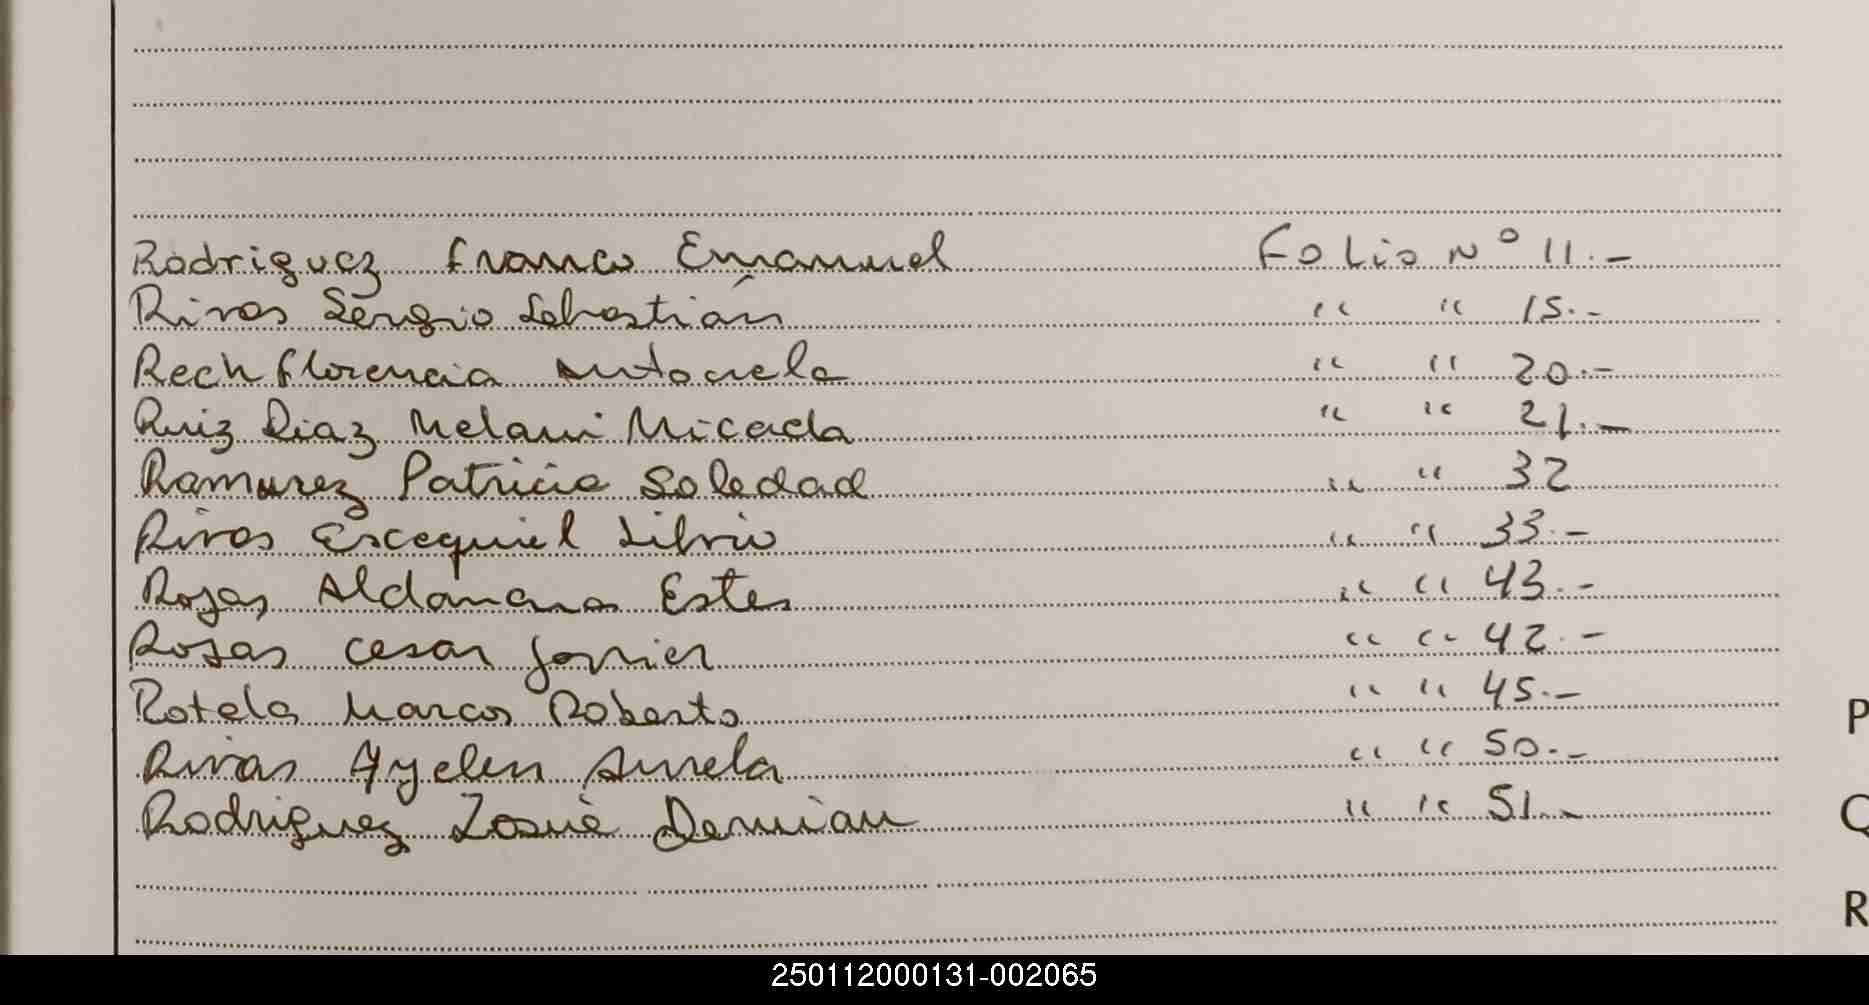 Rodriguez Franco Emanuel Folio N° 11.-
Rivas Sergio Sebastián " " 15.-
Rech Florencia Antonela " " 20.-
Ruiz Diaz Melani Micaela " " 21.-
Ramirez Patricia Soledad " " 32
Rivas Escequiel Silvio " " 33.-
Rojas Aldana Ester " " 43.-
Rojas Cesar Javier " " 42.-
Rotela Marcos Roberto " " 45.-
Rivas Ayelen " " 50.-
Rodriguez Josué Demian " " 51.-
P
Q
R
250112000131-002065